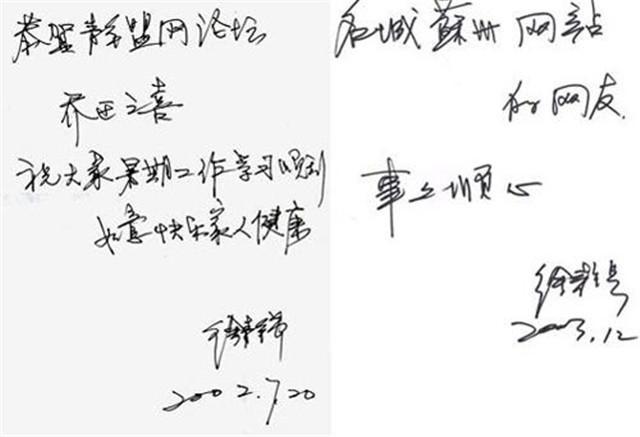 恭贺 盟网论坛
乔迁之喜
祝大家暑期工作学习顺利
如意快乐家人健康
2002.7.20
名城蘇州网站
的网友
事 顺心
2003.12